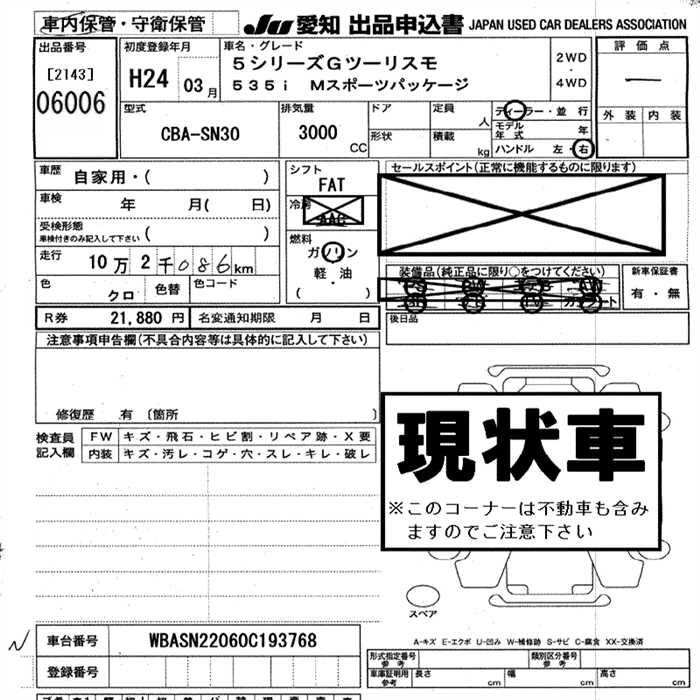 車内保管・守衛保管
JU 愛知 出品申込書 JAPAN USED CAR DEALERS ASSOCIATION
出品番号
[2143]
06006
初度登録年月
H24 03月
車名・グレード
5シリーズGツーリスモ
535i Mスポーツパッケージ
2WD
・
4WD
評価点
—
外装 内装
型式
CBA-SN30
排気量
3000
CC
ドア
形状
定員
人
積載
kg
ディーラー・並行
モデル年式 年
ハンドル 左・右
車歴 自家用・( )
車検 年 月( 日)
受検形態
車検付きのみ記入して下さい ( )
走行 10万2千086km
色 クロ 色替 色コード
シフト
FAT
冷房
AAC
燃料
ガソリン
軽・油
( )
セールスポイント(正常に機能するものに限ります)
装備品(純正品に限り○をつけてください)
新車保証書
有・無
R券 21,880円 名変通知期限 月 日
後日品
注意事項申告欄(不具合内容等は具体的に記入して下さい)
修復歴 有〔箇所 〕
検査員
記入欄
FW キズ・飛石・ヒビ割・リペア跡・X要
内装 キズ・汚レ・コゲ・穴・スレ・キレ・破レ
現状車
※このコーナーは不動車も含み
ますのでご注意下さい
スペア
A-キズ E-エクボ U-凹み W-補修跡 S-サビ C-腐食 XX-交換済
車台番号 WBASN22060C193768
登録番号
形式指定番号
参考
類別区分番号
参考
車庫証明用
参考
長さ cm 幅 cm 高さ cm